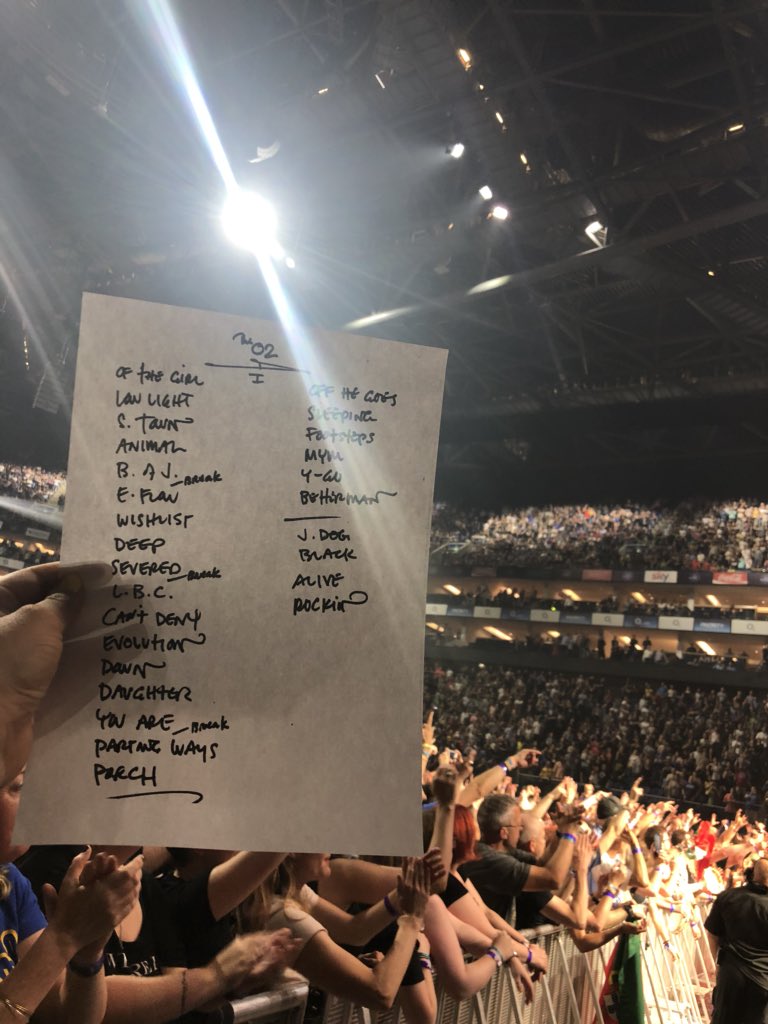 The O2
I
OF THE GIRL
LOW LIGHT
S. TOWN
ANIMAL
B. O J. - BREAK
E. FLOW
WISHLIST
DEEP
SEVERED - BREAK
L.B.C.
CAN'T DENY
EVOLUTION
DAWN
DAUGHTER
YOU ARE - BREAK
PARTING WAYS
PORCH
OFF HE GOES
SLEEPING
FOOTSTEPS
MYM
Y-GO
BETTERMAN
J. DOG
BLACK
ALIVE
ROCKIN
sky
O2